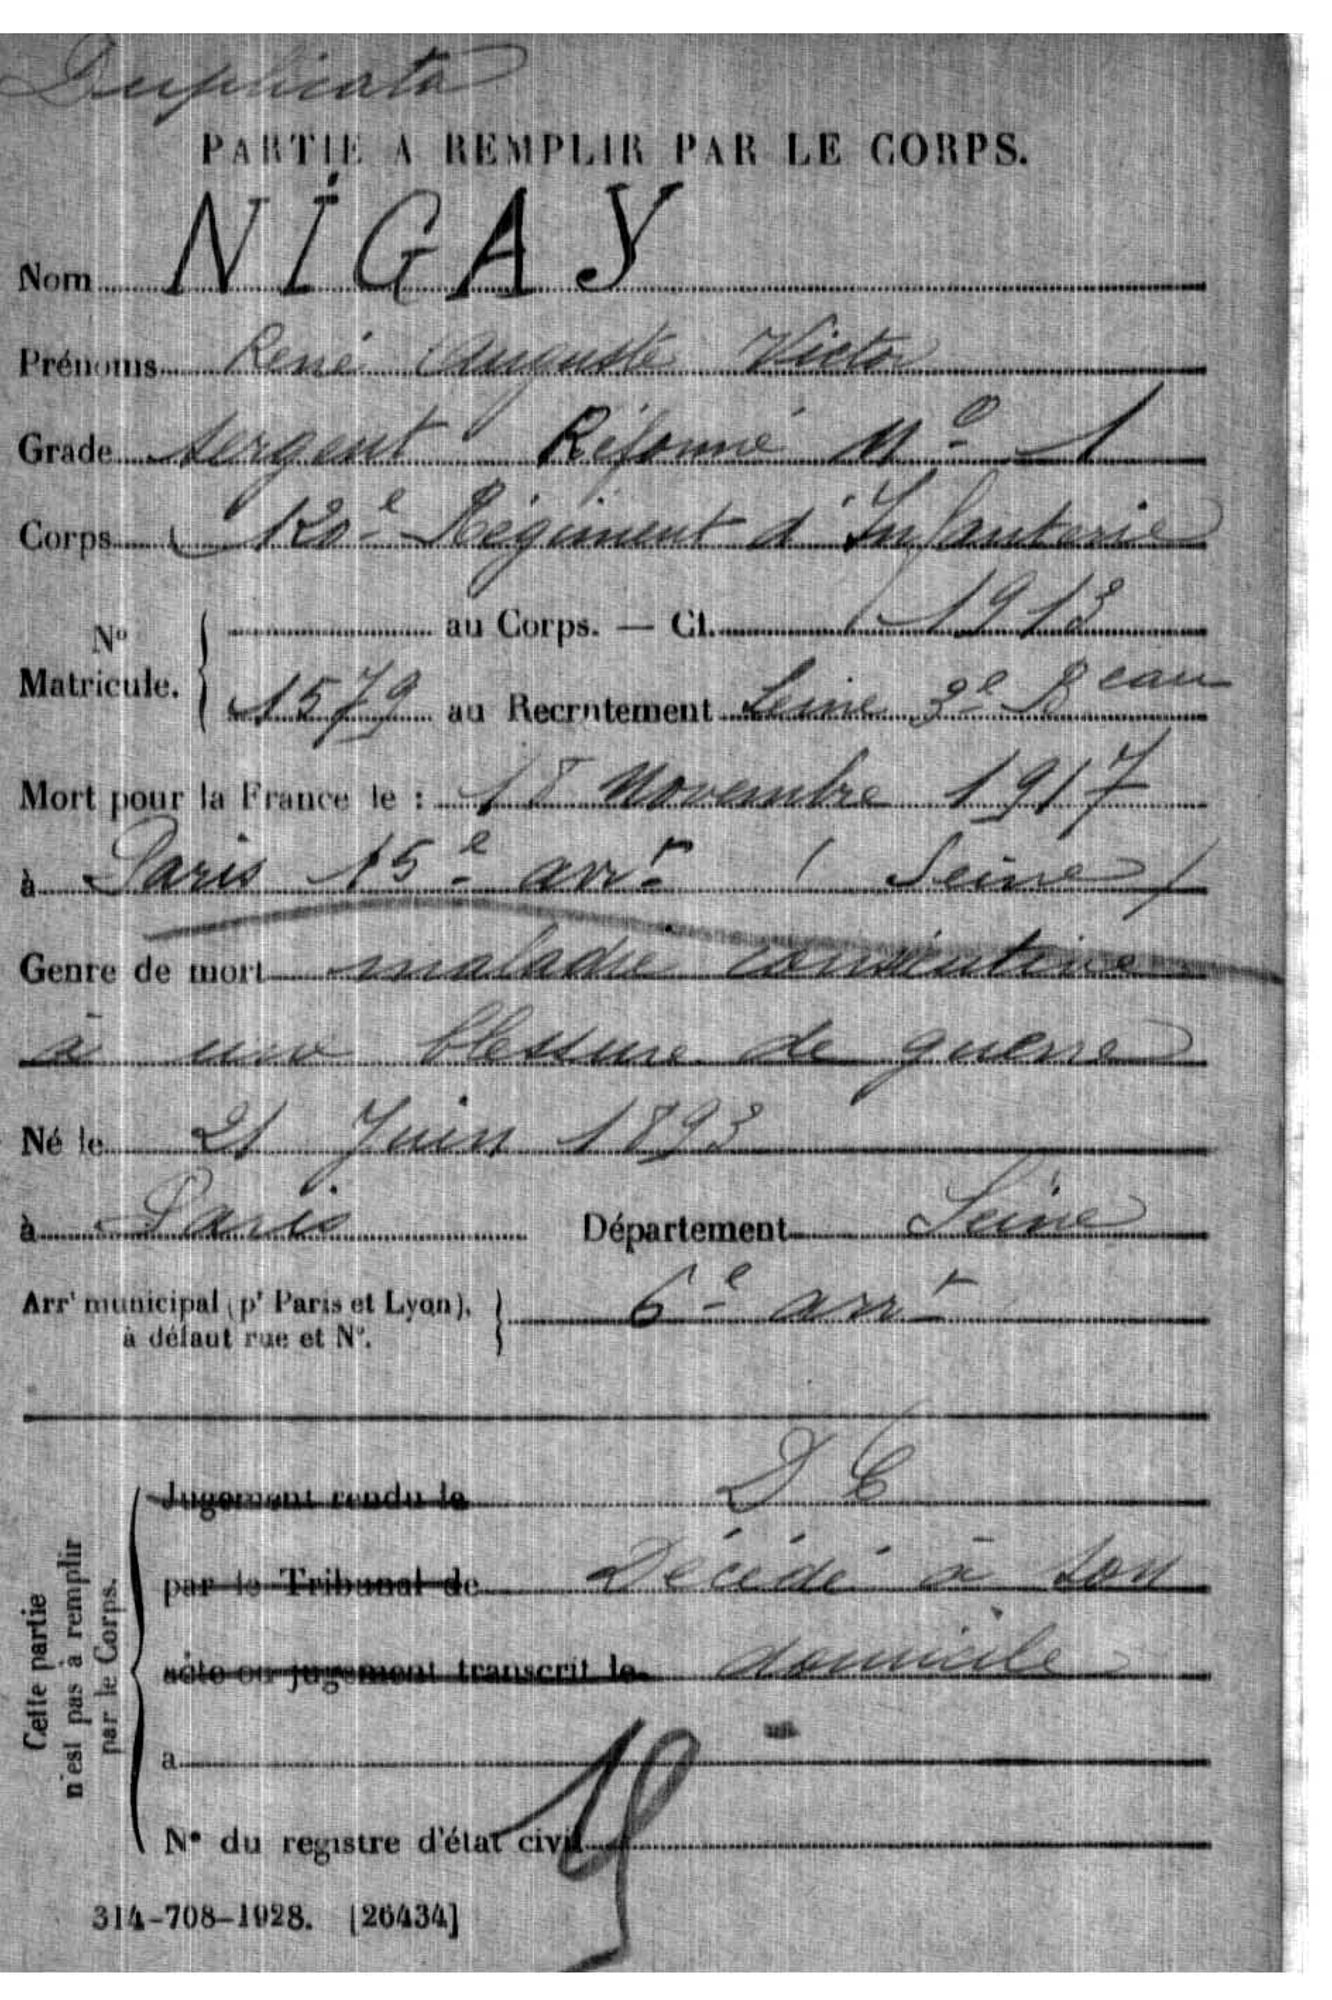 Duplicata
PARTIE A REMPLIR PAR LE CORPS.
Nom NIGAY
Prénoms René Auguste Victor
Grade sergent Réformé N° 1
Corps 120e Régiment d'Infanterie
N° Matricule. { au Corps. — Cl. 1913
1579 au Recrutement Seine 3e Beau
Mort pour la France le : 18 Novembre 1917
à Paris 15e arrt (Seine)
Genre de mort maladie consécutive
à une blessure de guerre
Né le 21 Juin 1893
à Paris Département Seine
Arrt municipal (pr Paris et Lyon), à défaut rue et N°. } 6e arrt
Cette partie n'est pas à remplir par le Corps.
Jugement rendu le D C
par le Tribunal de Décédé à son
acte ou jugement transcrit le domicile
a
N° du registre d'état civil
314-708-1928. [26434]